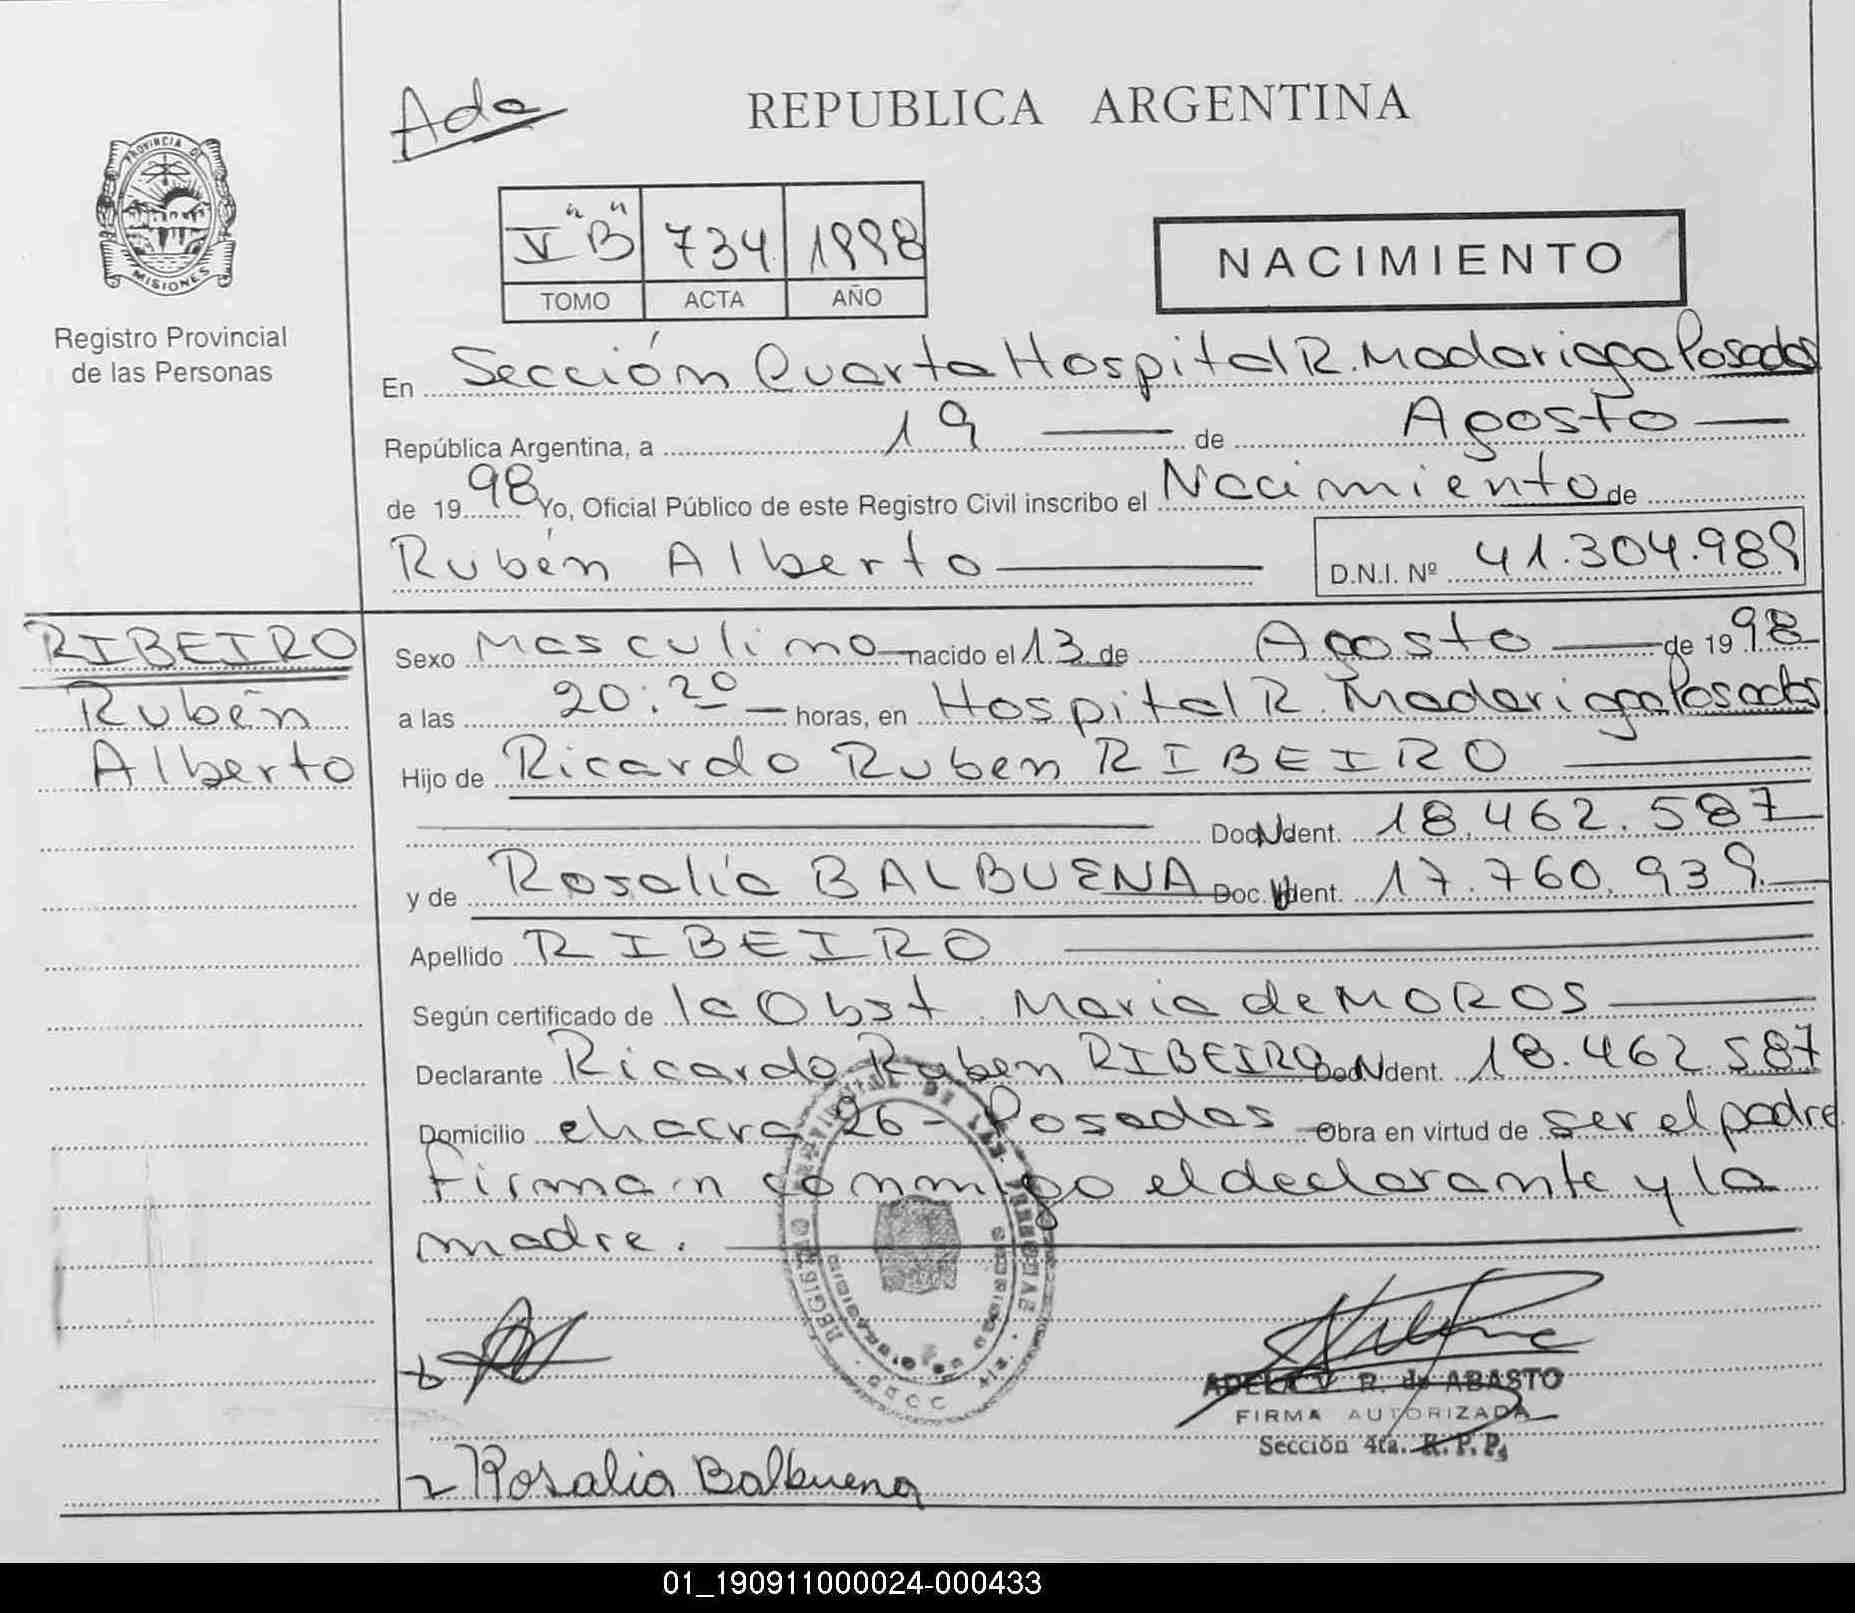 Ada
REPUBLICA ARGENTINA
PROVINCIA DE
MISIONES
Registro Provincial
de las Personas
V "B" 734 1998
TOMO ACTA AÑO
NACIMIENTO
En Sección Cuarta Hospital R. Madariaga Posadas
República Argentina, a 19 de Agosto
de 1998 Yo, Oficial Público de este Registro Civil inscribo el Nacimiento de
Rubén Alberto D.N.I. Nº 41.304.989
RIBEIRO
Rubén
Alberto
Sexo Masculino nacido el 13 de Agosto de 1998
a las 20:20 horas, en Hospital R. Madariaga Posadas
Hijo de Ricardo Ruben RIBEIRO
Doc. N Ident. 18.462.587
y de Rosalía BALBUENA Doc. N Ident. 17.760.939
Apellido RIBEIRO
Según certificado de la Obst. Maria de MOROS
Declarante Ricardo Ruben RIBEIRO Doc. N Ident. 18.462.587
Domicilio chacra 26 - Posadas Obra en virtud de ser el padre
Firman conmigo el declarante y la
madre.
ADELA V. R. de ABASTO
FIRMA AUTORIZADA
Sección 4ta. R. P. P.
Rosalia Balbuena
01_190911000024-000433